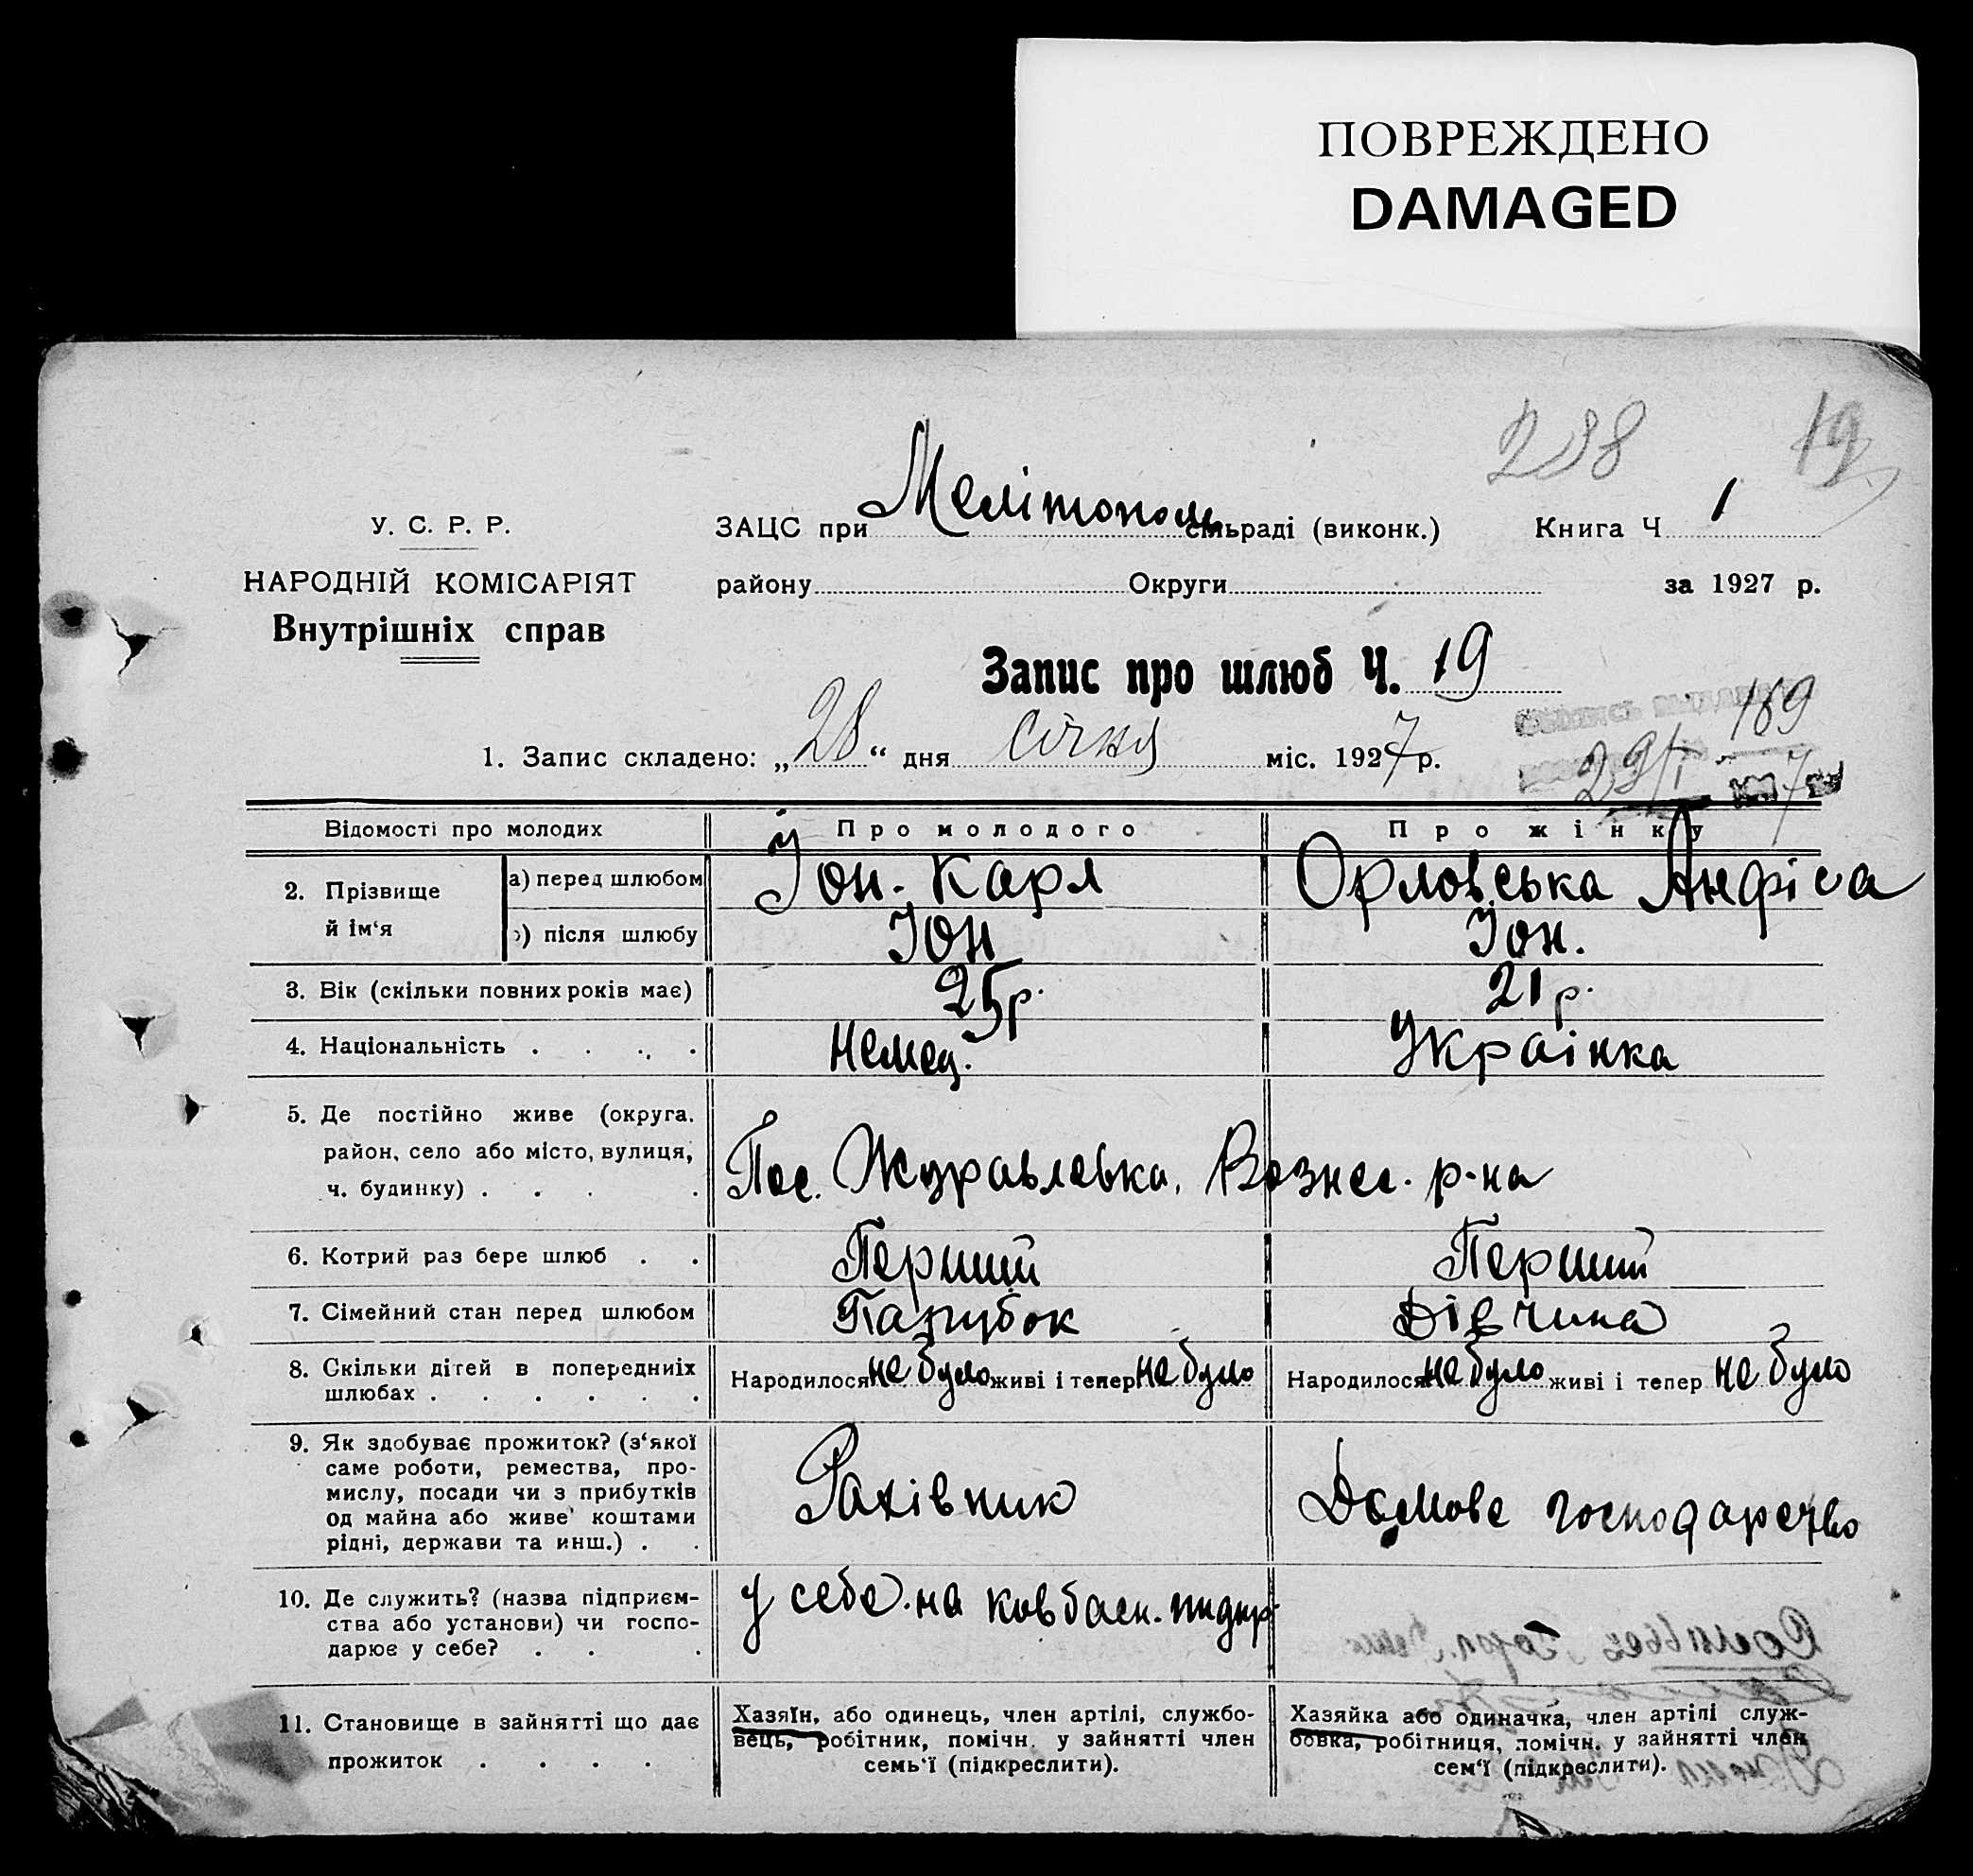 ПОВРЕЖДЕНО
DAMAGED
238 19
У. С. Р. Р.
НАРОДНІЙ КОМІСАРІЯТ
Внутрішніх справ
ЗАЦС при Мелітополь сільраді (виконк.) Книга Ч 1
району Округи за 1927 р.
Запис про шлюб Ч. 19
169
1. Запис складено: „28“ дня січня міс. 1927 р.
29/I 7
Відомості про молодих Про молодого Про жінку
2. Прізвище й ім‘я а) перед шлюбом Іон. Карл Орловська Анфіса
) після шлюбу Іон Іон.
3. Вік (скільки повних років має) 25 р. 21 р.
4. Національність . . . . Немец. Украінка
5. Де постійно живе (округа,
район, село або місто, вулиця, Пос. Журавлевка, Вознес. р-на
ч. будинку) . . . .
6. Котрий раз бере шлюб . . Перший Перший
7. Сімейний стан перед шлюбом Парубок Дівчина
8. Скільки дітей в попередниіх Народилося не було живі і тепер не було Народилося не було живі і тепер не було
шлюбах . . . . . .
9. Як здобуває прожиток? (з‘якої
саме роботи, ремества, про-
мислу, посади чи з прибутків Рахівник Домове господарство
од майна або живе коштами
рідні, держави та инш.) . .
10. Де служить? (назва підприєм- у себе. на ковбасн. підпр.
ства або установи) чи госпо-
дарює у себе? . . .
11. Становище в зайнятті що дає Хазяїн, або одинець, член артілі, службо- Хазяйка або одиначка, член артілі служ-
вець, робітник, помічн. у зайнятті член бовка, робітниця, помічн. у зайнятті член
прожиток . . . . семь‘ї (підкреслити). сем‘ї (підкреслити).